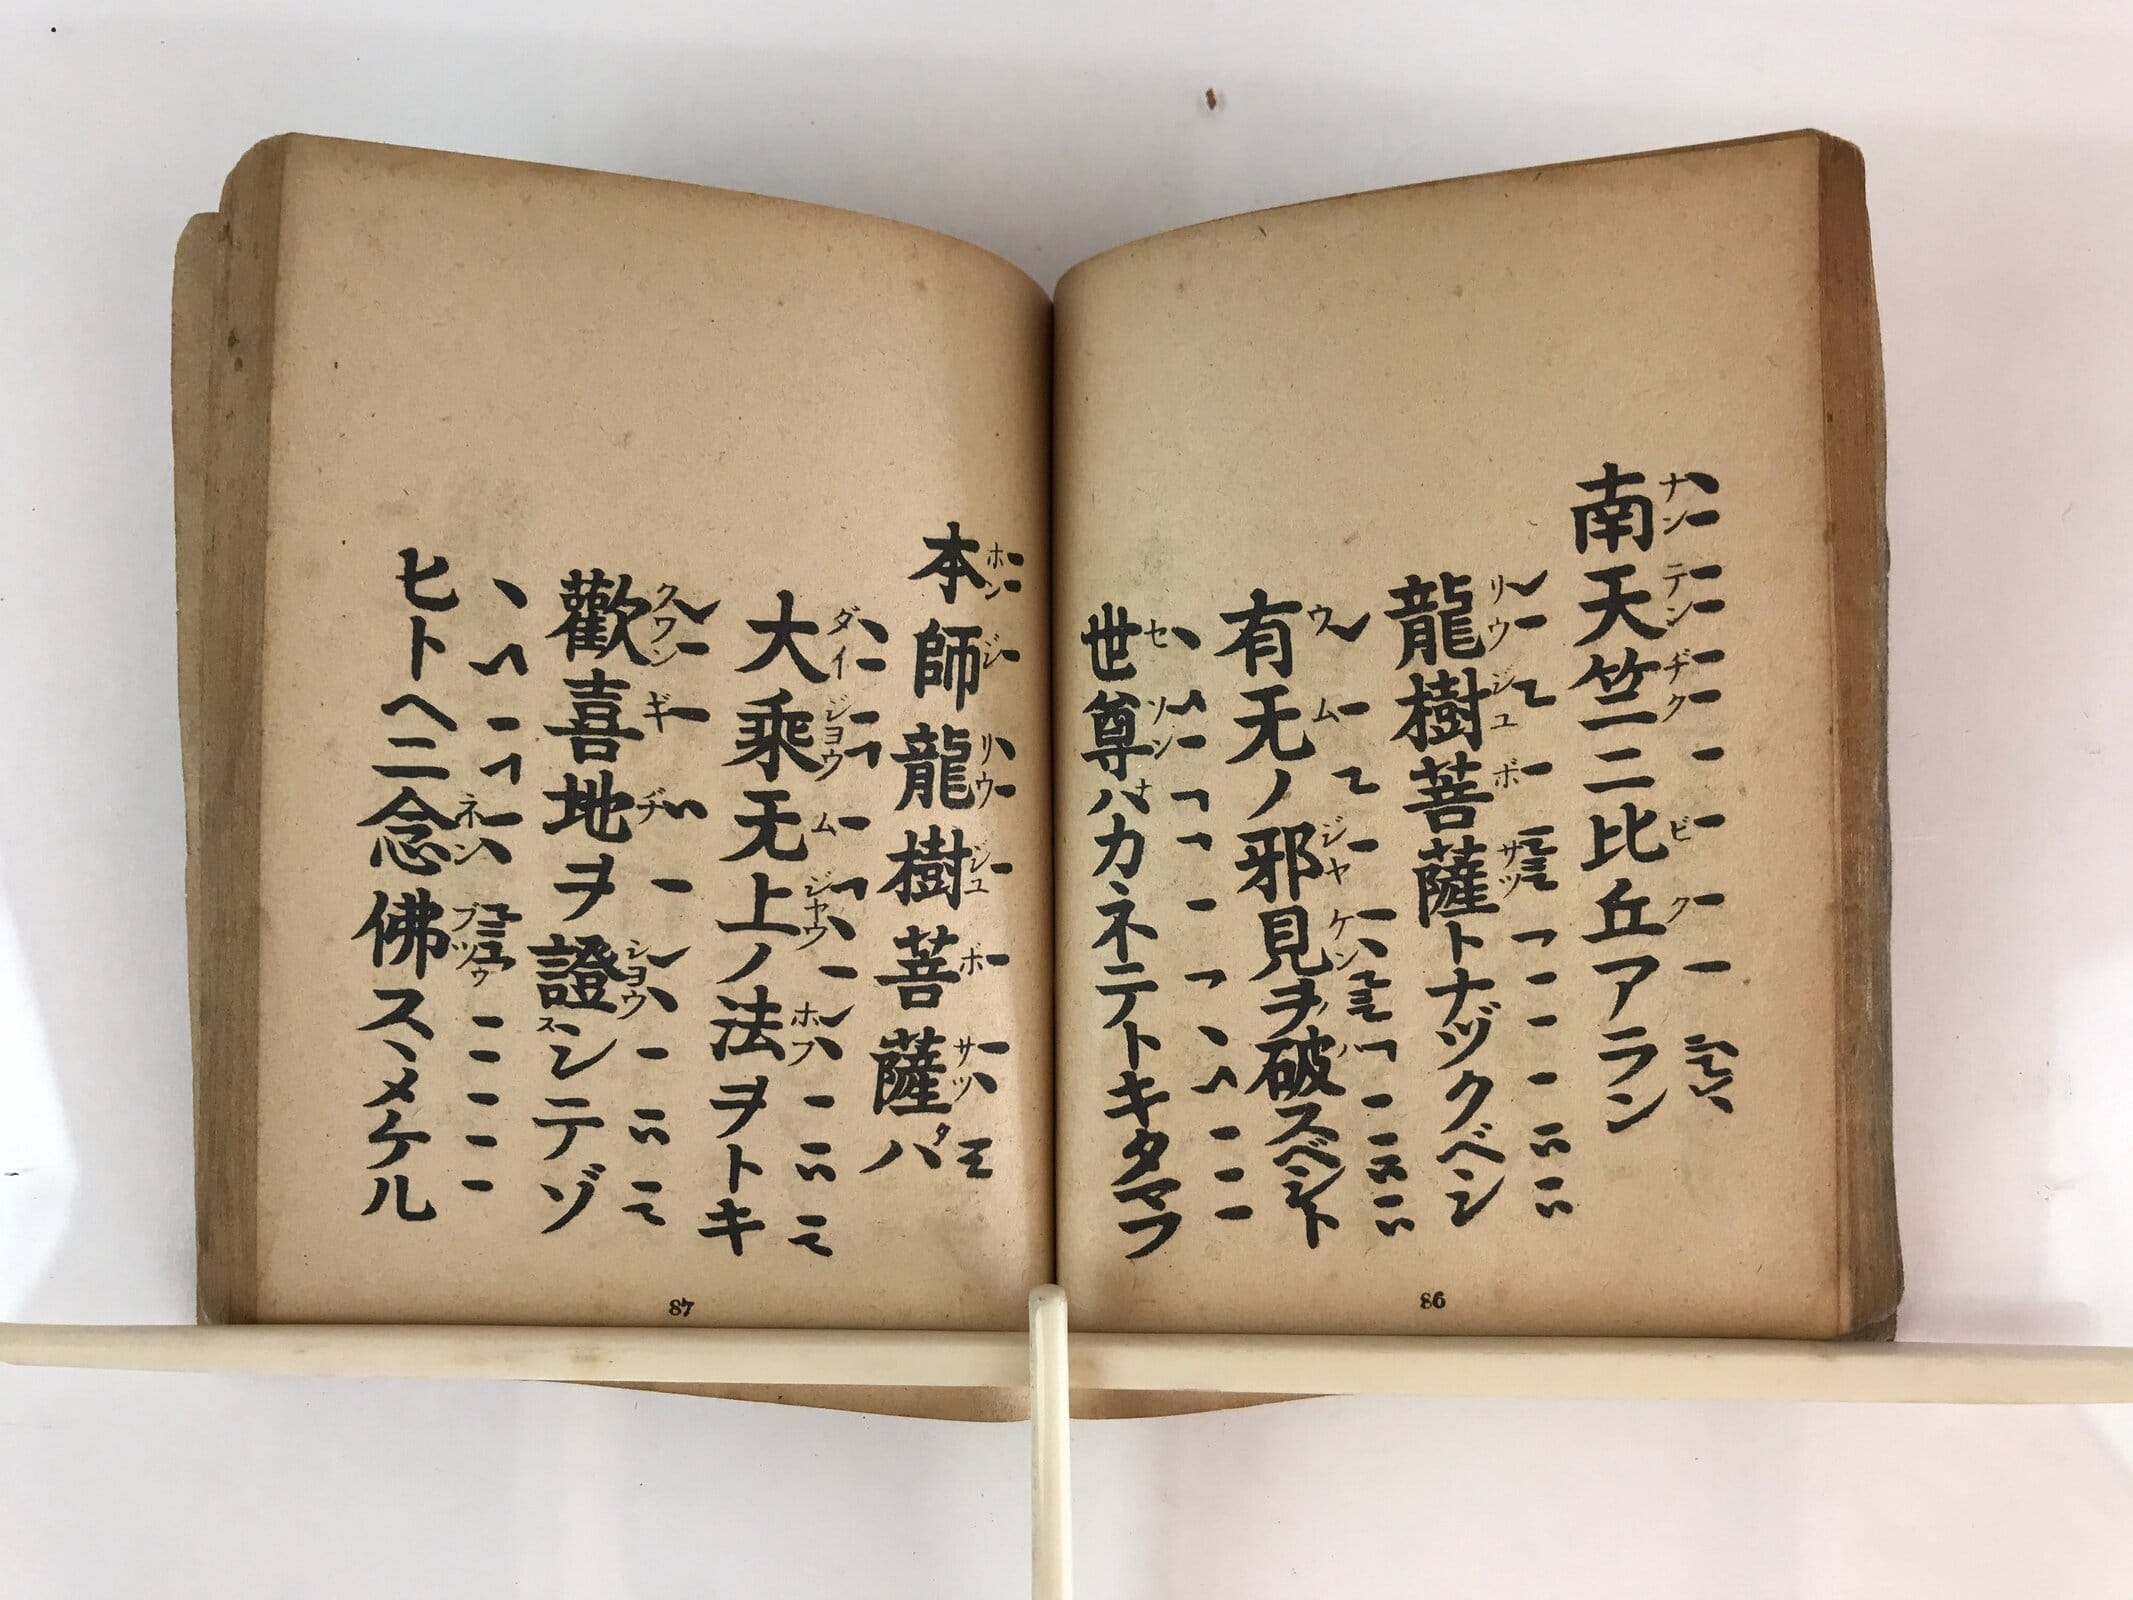 南天竺ニ比丘アラン
龍樹菩薩トナヅクベシ
有无ノ邪見ヲ破スベシト
世尊ハカネテトキタマフ
86
本師龍樹菩薩ハ
大乘无上ノ法ヲトキ
歡喜地ヲ證シテゾ
ヒトヘニ念佛スヽメケル
87